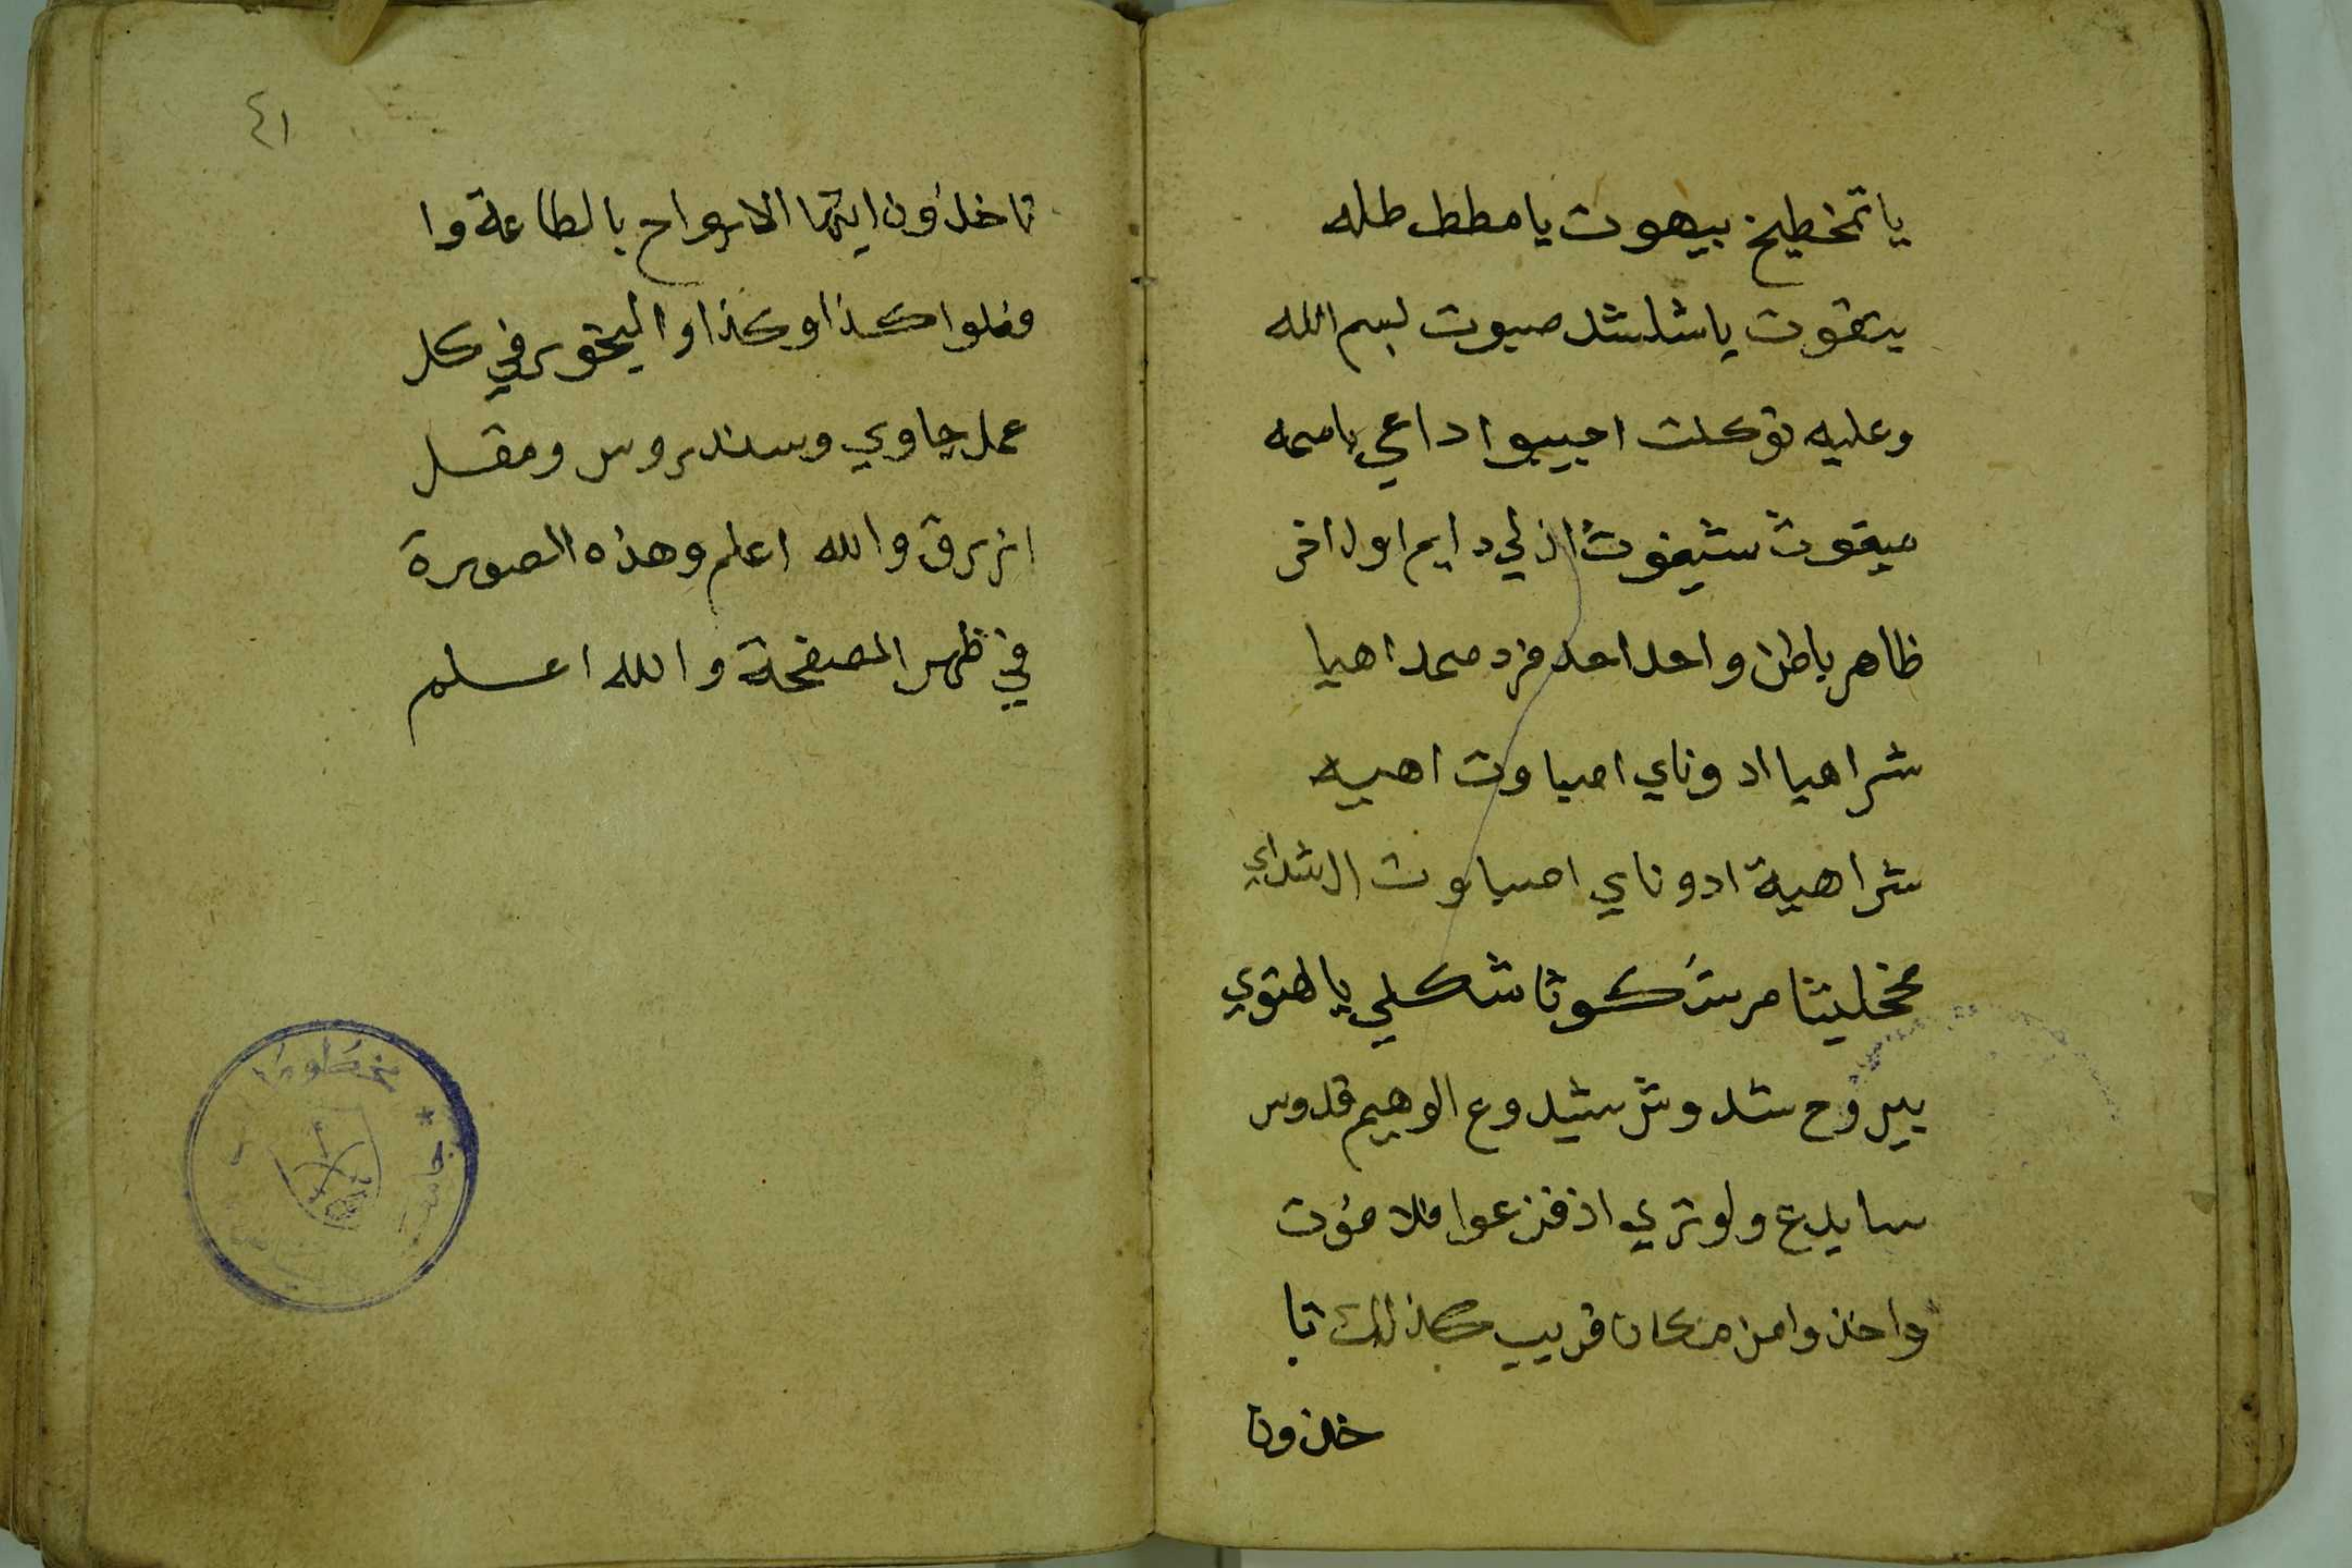 يا تمخطيخ بيهوت يا مطط طله
يتقوت يا شلشد صيوت بسم الله
وعليه توكلت اجيبوا داعي باسمه
ميقوت شيغوث ازلي دايم اول اخر
ظاهر باطن واحد احد فرد صمد اهيا
شراهيا ادوناي اصباوت اهيه
شراهية ادوناي اصباوت ال شداي
مخخليثا مرتكوتا شكلي يا لهتوي
بيروح شدوش شيدوع الوهيم قدوس
سايدع ولو تري اذ فزعوا فلا فوت
واخذوا من مكان قريب كذلك تا
خذون
٤١
تاخذون ايتها الارواح بالطاعة وا
فعلوا كذا وكذا والبخور في كل
عمل جاوي وسندروس ومقل
ازرق والله اعلم وهذه الصورة
في ظهر الصفحة والله اعلم